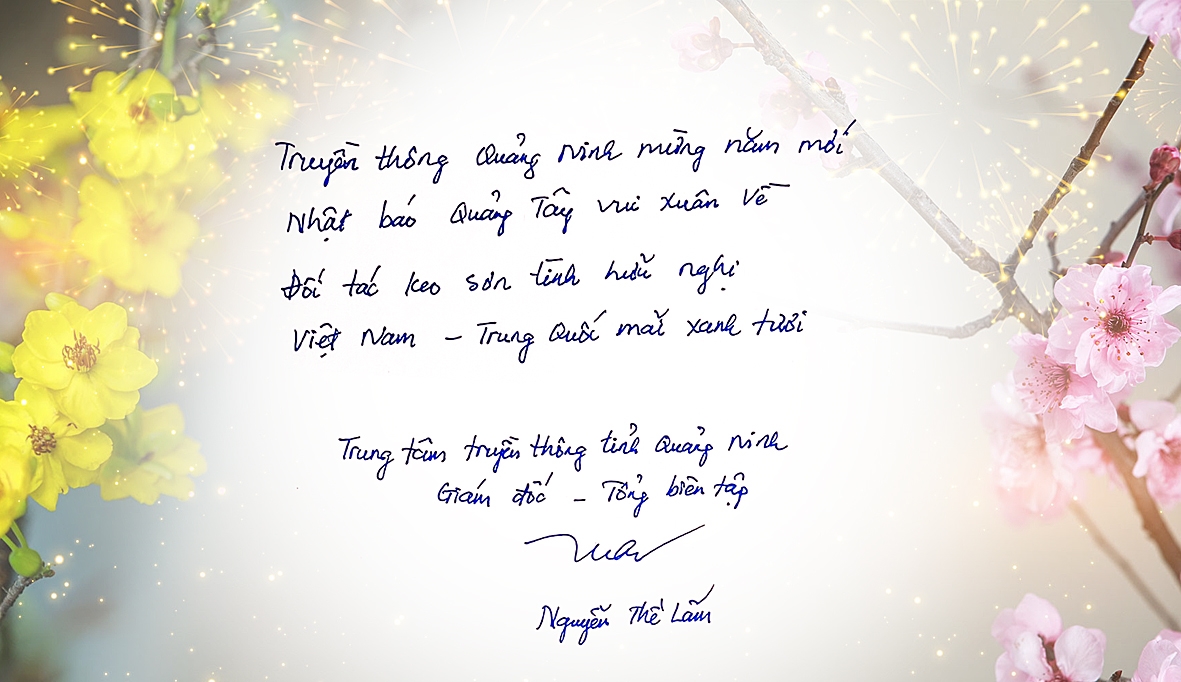 Truyền thông Quảng Ninh mừng năm mới
Nhật báo Quảng Tây vui xuân về
Đối tác keo sơn tình hữu nghị
Việt Nam – Trung Quốc mãi xanh tươi
Trung tâm truyền thông tỉnh Quảng Ninh
Giám đốc – Tổng biên tập
Nguyễn Thế Lãm